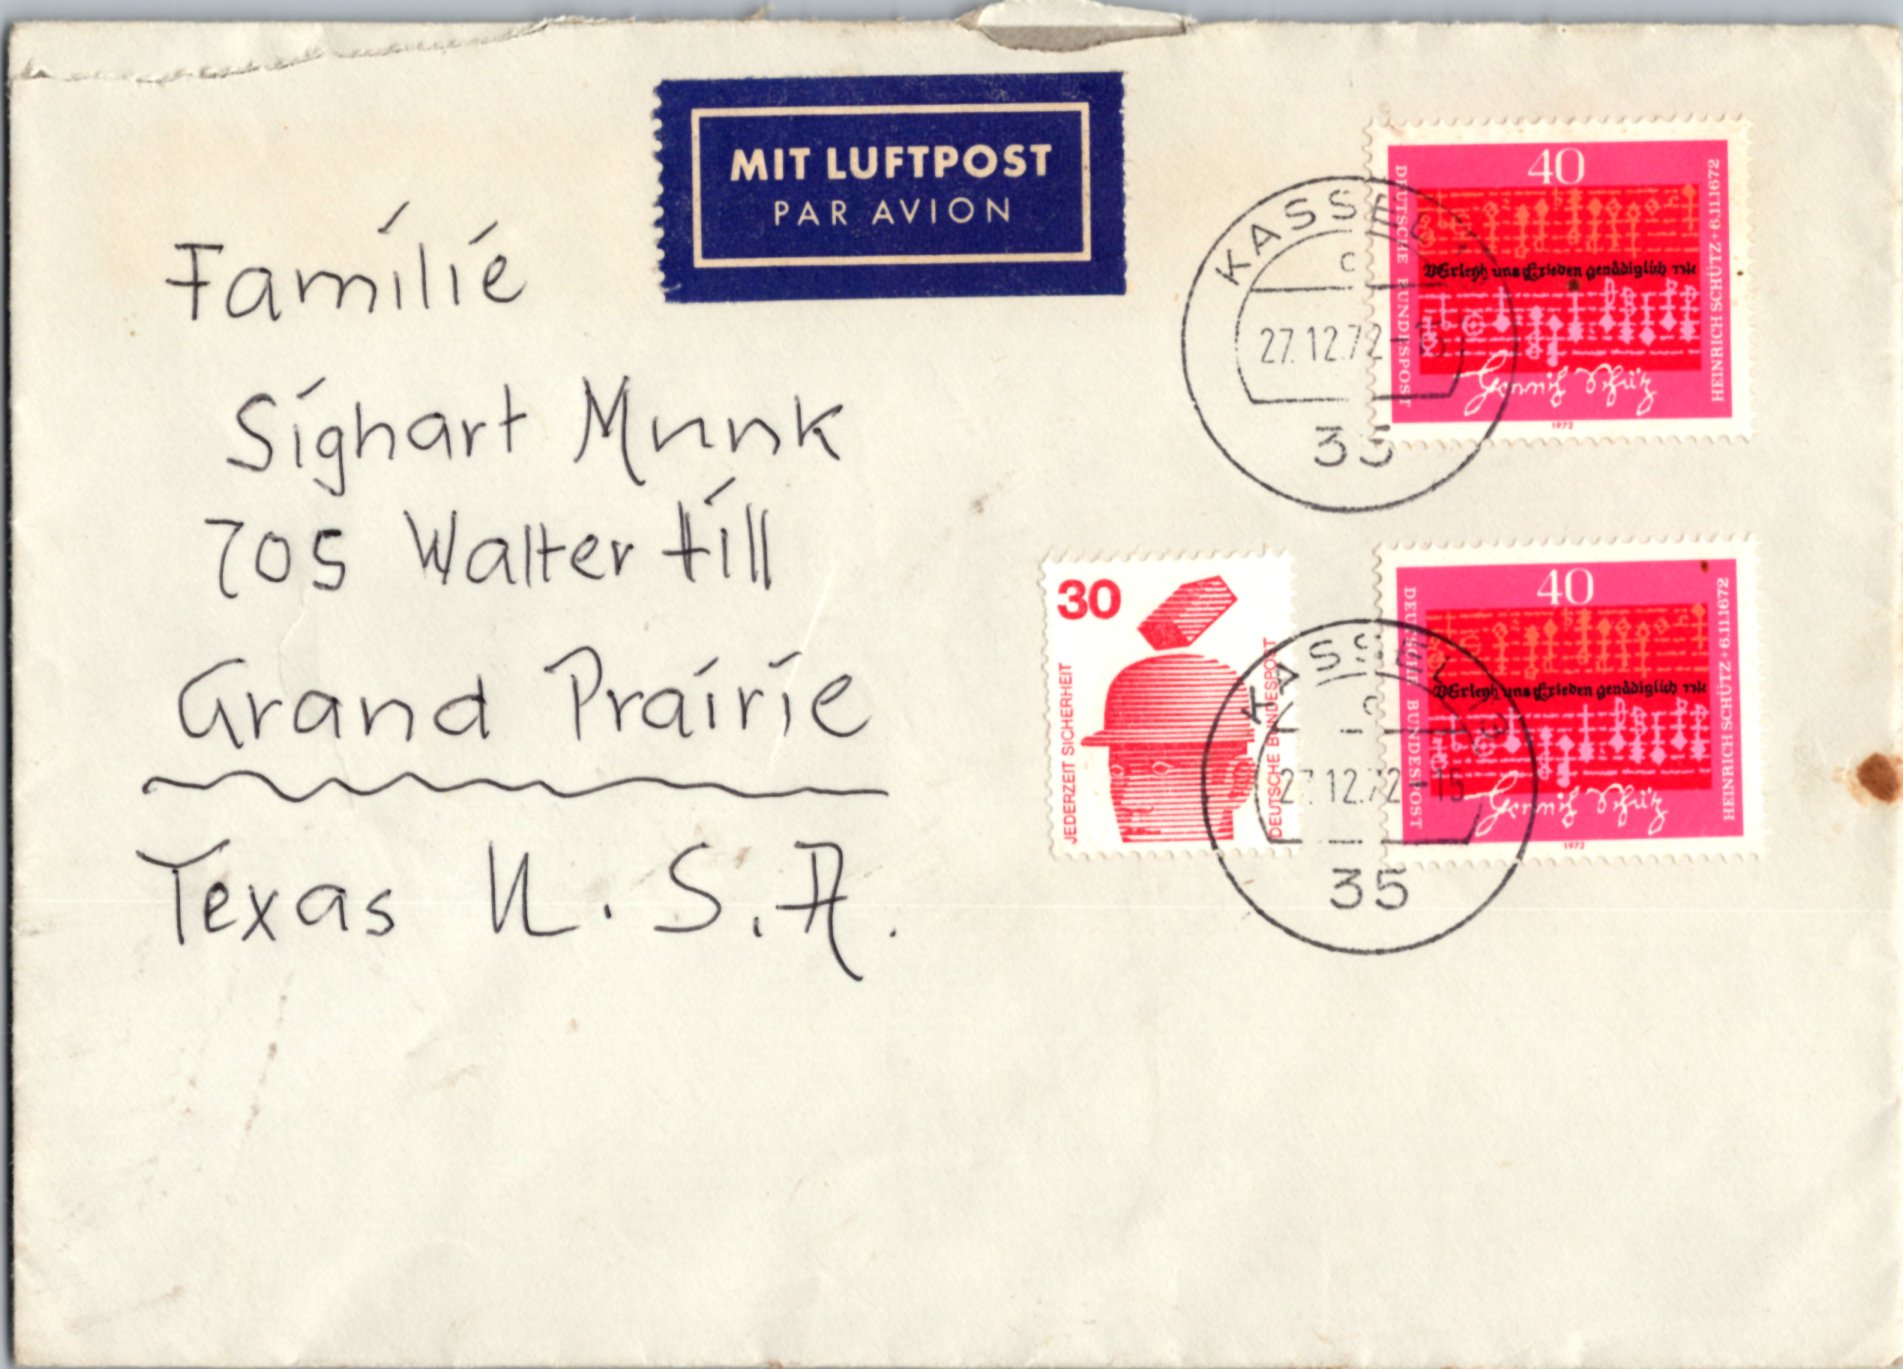 MIT LUFTPOST
PAR AVION
Familie
Sighart Munk
705 Walter Hill
Grand Prairie
Texas U.S.A.
40
DEUTSCHE BUNDESPOST
VErleyh uns Frieden genådiglich
Heinrich Schütz
HEINRICH SCHÜTZ + 6.11.1672
1972
KASSEL
c
27.12.72-15
35
30
JEDERZEIT SICHERHEIT
DEUTSCHE BUNDESPOST
40
DEUTSCHE BUNDESPOST
VErleyh uns Frieden genådiglich
Heinrich Schütz
HEINRICH SCHÜTZ + 6.11.1672
1972
KASSEL
c
27.12.72-15
35